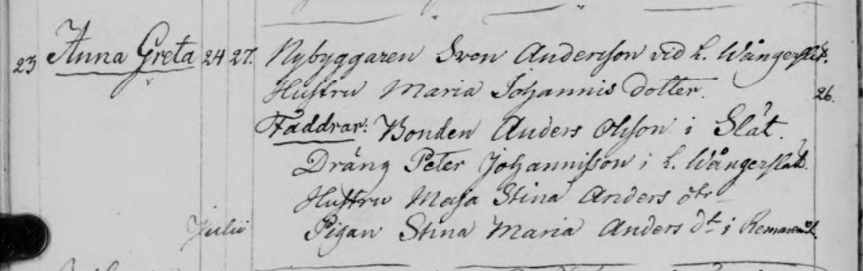 23 Anna Greta 24 27. Nybyggaren Sven Andersson vid L. Wångerslät.
Hustru Maria Johannis dotter. 26.
Faddrar: Bonden Anders Olsson i Slät.
Dräng Peter Johannisson i L. Wångerslät.
Hustru Maja Stina Anders dtr
Julii Pigan Stina Maria Anders dt i